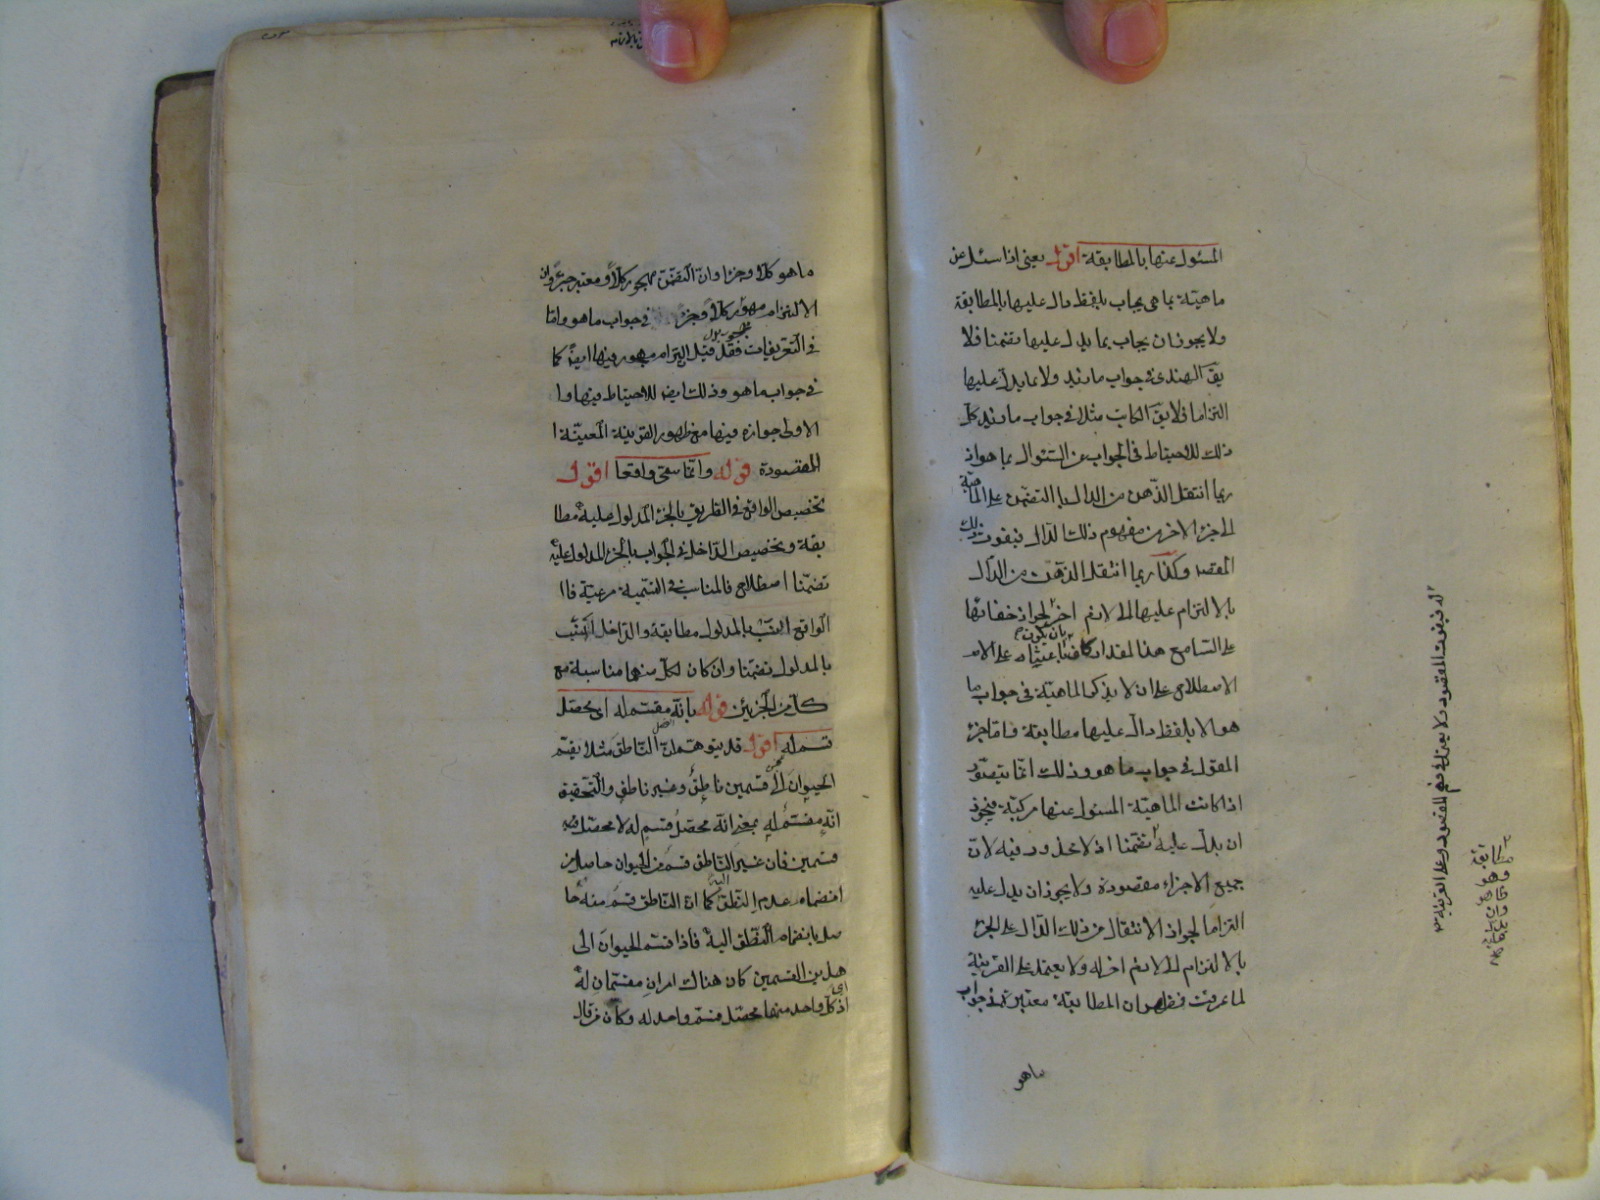 المسئول عنها بالمطابقة اقول يعنى اذا سئل عن
ماهيّة بما هى يجاب بلفظ دال عليها بالمطابقة
ولا يجوز ان يجاب بما يدل عليها تضمنا فلا
يق الهندى فى جواب ما زيد ولا بما يدل عليها
التزاما فلا يق الكاتب مثلا فى جواب ما زيد كل
ذلك للاحتياط فى الجواب عن السئوال بما هو اذ
ربما انتقل الذهن من الدال بالتضمن على الماهية
الى جزء الاخر من مفهوم ذلك الدال فيفوت ذلك
المقصد وكذا ربما انتقل الذهن من الدال
بالالتزام عليها الى لازم اخر لجواز خفائها
على السامع هذا لمقدار كاف بان يكون على الا
الاصطلاح على ان لا يذكر الماهيّة فى جواب ما
هو الا بلفظ دال عليها مطابقة فاما جزء
المقول فى جواب ما هو وذلك انما يتصور
اذا كانت الماهيّة المسئول عنها مركبة فيجوز
ان يدل عليه تضمنا اذ لا محذور فيه لان
جميع الاجزاء مقصودة ولا يجوز ان يدل عليه
التزاما لجواز الانتقال من ذلك الدال على الجزء
بالالتزام الى لازم اخر له ولا يعتمد على القرينة
لما عرفت فظهر ان المطابقة معتبرة فى جواب
ماهو
فيفوت المقصود ولا يعتمد فى فهم المقصود على القرينة
ما هو كلا وجزءا وان التضمن مهجور كلا ومعتبر جزءا وان
الالتزام مهجور كلا وجزء فى جواب ما هو واما
فى التعريفات فقد قيل التزام مهجور فيها ايضا كما
فى جواب ما هو وذلك ايضا للاحتياط فيها وا
الاولى جوازه فيها مع ظهور القرينة المعيّنة ا
المقصودة قوله وانما سمى واقعا اقول
تخصيص الواقع فى الطريق بالجزء المدلول عليه مطا
بقة وتخصيص الداخل فى الجواب بالجزء المدلول عليه
تضمنا اصطلاح فالمناسب فى التسمية مرعيّة فا
الواقع انسب بالمدلول مطابقة والداخل انسب
بالمدلول تضمنا وان كان لكل منهما مناسبة مع
كل من الجزئين قوله بانه مقسم له اى محصل
قسم له اقول قد يتوهم ان الفصل الناطق مثلا يقسم
الحيوان الى قسمين ناطق وغير ناطق والتحقيق
انه مقسم له بمعنى انه محصل قسم له لا محصل
قسمين فان غير الناطق قسم من الحيوان حاصل من
انضمام عدم النطق اليه كما ان الناطق قسم منه حا
صل بانضمام النطق اليه فاذا قسم الحيوان الى
هذين القسمين كان هناك امران مقسمان له
اذ كل واحد منهما محصل قسم واحد له وكان من قال